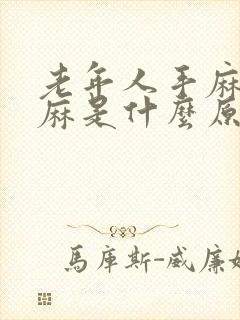 老年人手麻
麻是什麼原
馬庫斯-威廉